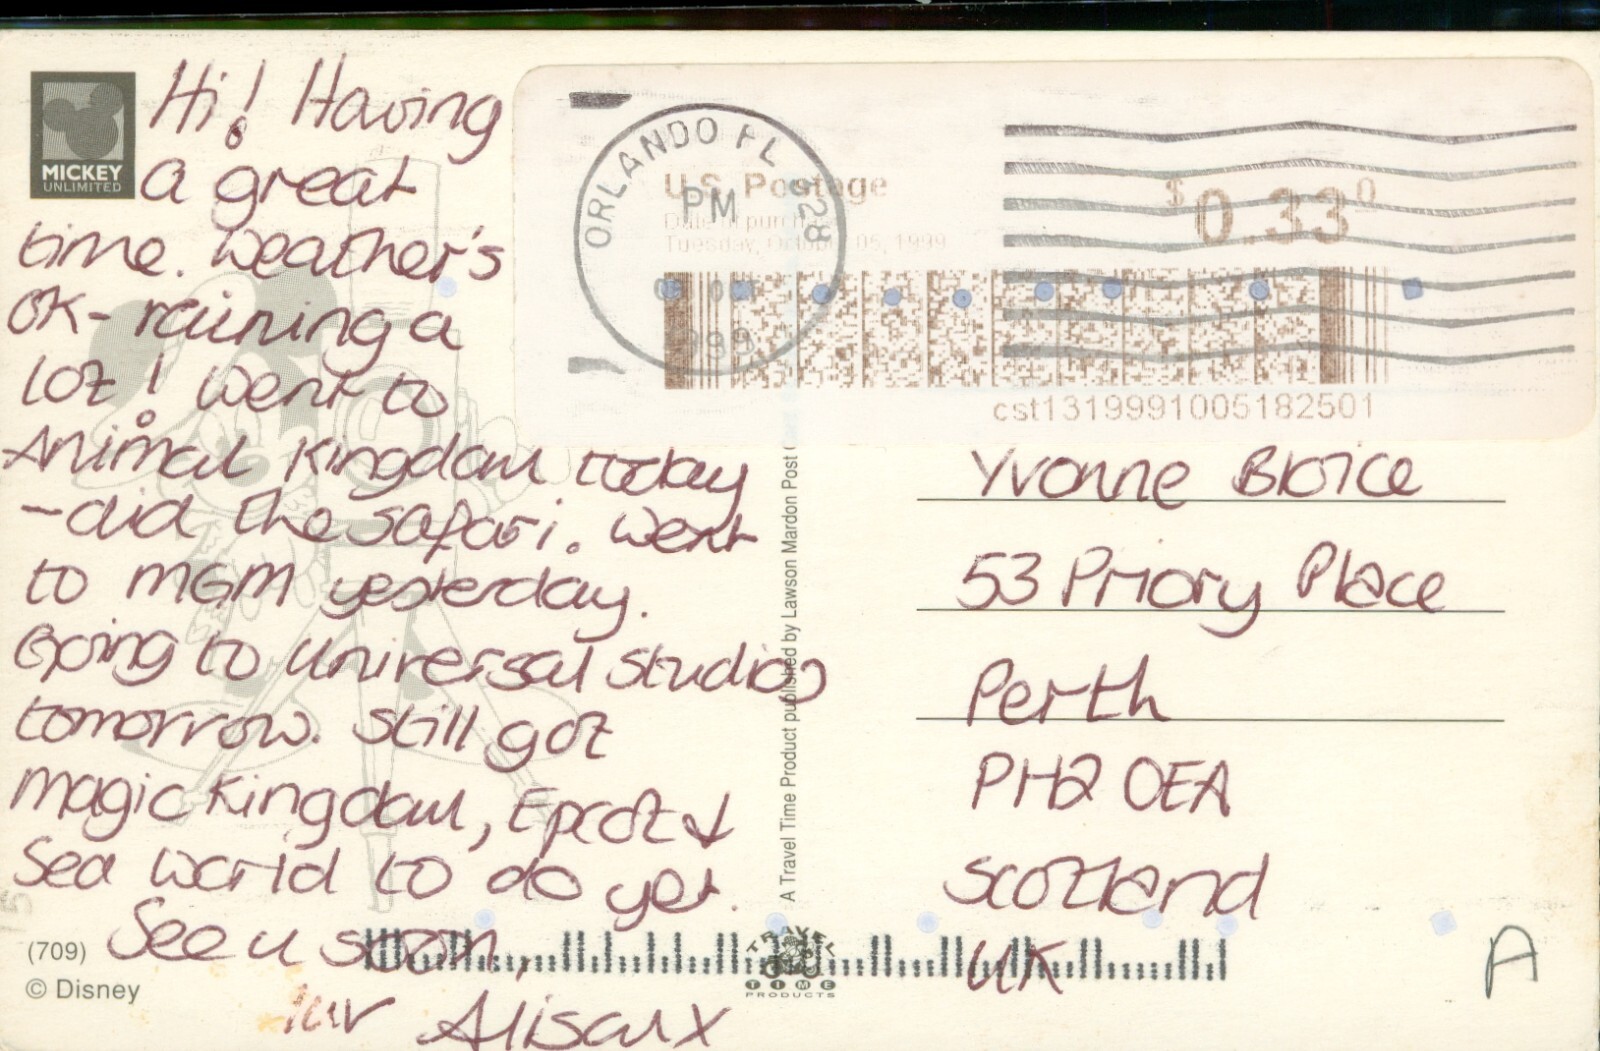 MICKEY
UNLIMITED
Hi! Having
a great
time. Weather's
OK - raining a
lot! Went to
Animal Kingdom today
- did the safari. Went
to MGM yesterday.
Going to Universal Studios
tomorrow. Still got
Magic Kingdom, Epcot &
Sea World to do yet.
See u soon,
luv Alison x
(709)
© Disney
A Travel Time Product published by Lawson Mardon Post
TRAVEL
TIME
PRODUCTS
ORLANDO FL 328
PM
1999
U.S. Postage
Date of purchase
Tuesday, October 05, 1999
$0.330
cst1319991005182501
Yvonne
53 Priory Place
Perth
PH2 0EA
Scotland
UK
A